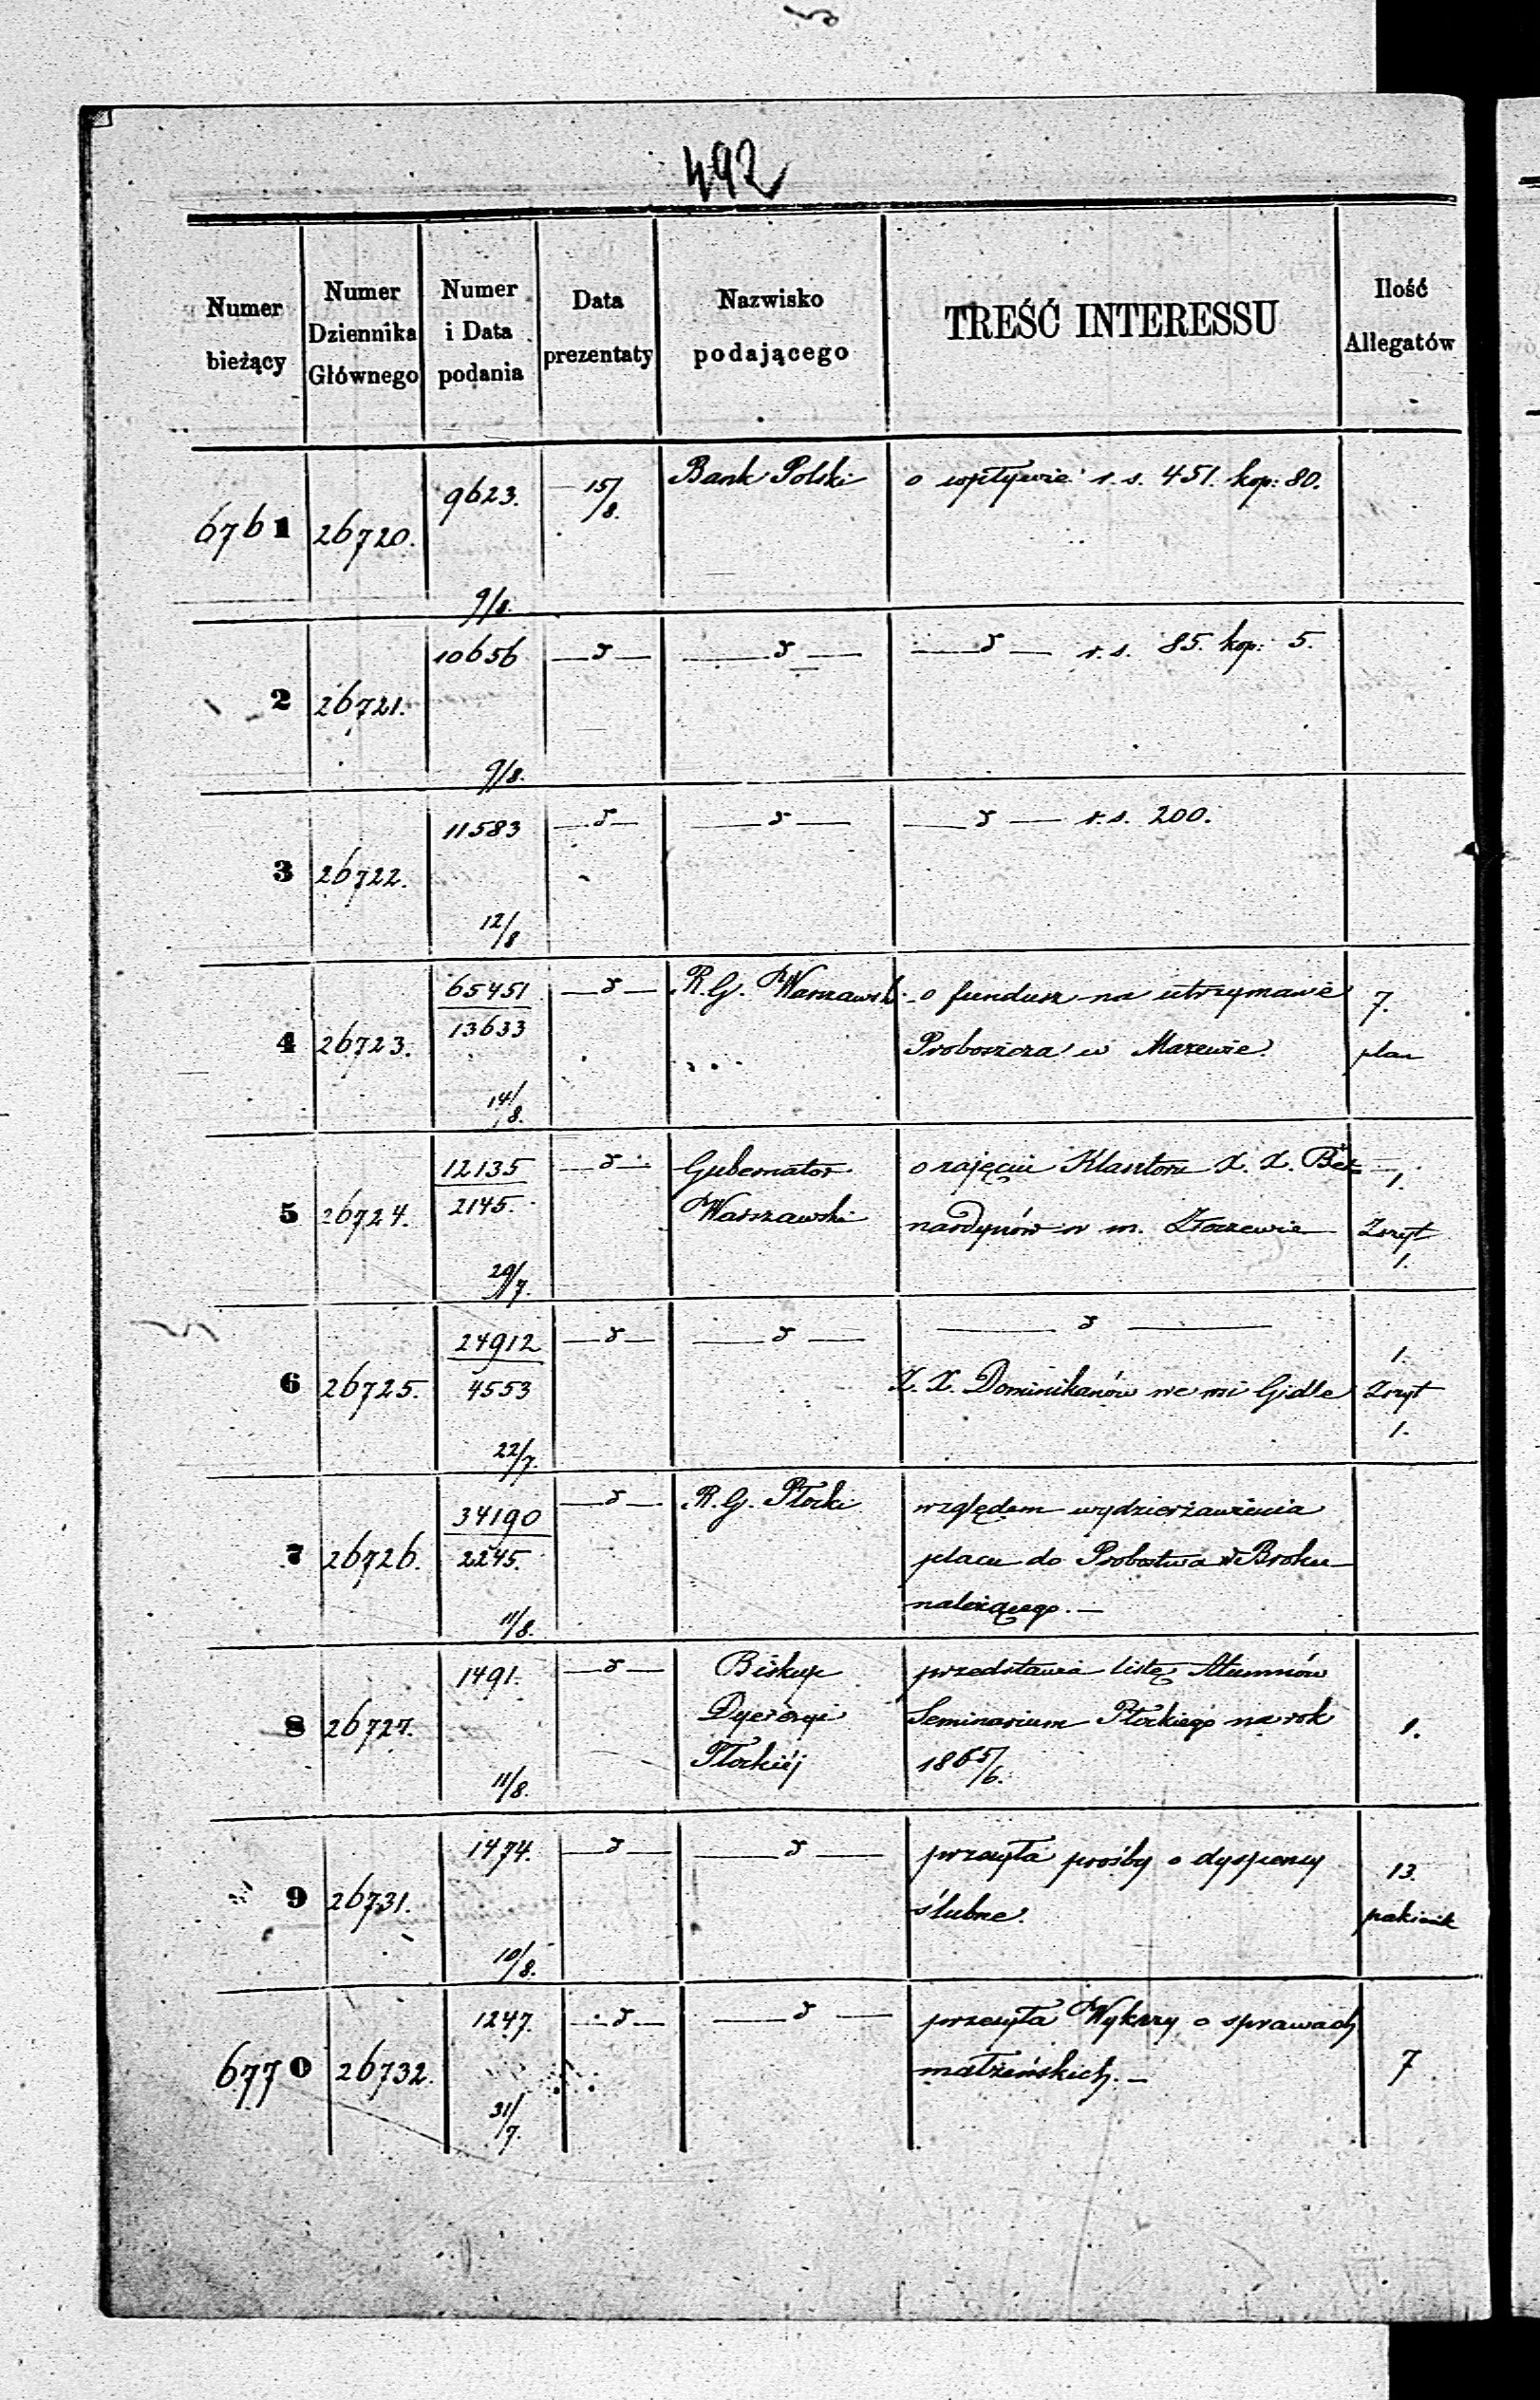 492
Numer bieżący
Numer Dziennika Głównego
Numer i Data podania
Data prezentaty
Nazwisko podającego
TREŚĆ INTERESSU
Ilość Allegatów
6761 26720. 9623. 9/8. 15/8. Bank Polski o wpływie r. s. 451. kop: 80.
2 26721. 10656 9/8. — d — — d — — d — r. s. 85. kop: 5.
3 26722. 11583 12/8 — d — — d — — d — r. s. 200.
4 26723. 65451 13633 14/8. — d — R. G. Warszawski o fundusz na utrzymanie 7.
Proboszcza w Mazewie. plan
5 26724. 12135 2145. 29/7. — d — Gubernator o zajęciu Klasztoru X. X. Ber- 1.
Warszawski nardynów w m. Złoczewie Zszyt
1.
6 26725. 24912 4553 22/7. — d — — d — — d — 1.
X. X. Dominikanów we wsi Gidle Zszyt
1.
7 26726. 34190 2245. 11/8. — d — R. G. Płocki względem wydzierżawienia
placu do Probostwa w Broku
należącego. —
8 26727. 1491. 11/8. — d — Biskup przedstawia listę Alumnów
Dyecezyi Seminarium Płockiego na rok 1.
Płockiéj 1865/6.
9 26731. 1474. 10/8. — d — — d — przesyła prośby o dyspensy 13.
ślubne.
6770 26732. 1247. 31/7. — d — — d — przesyła Wykazy o sprawach
małżeńskich. — 7